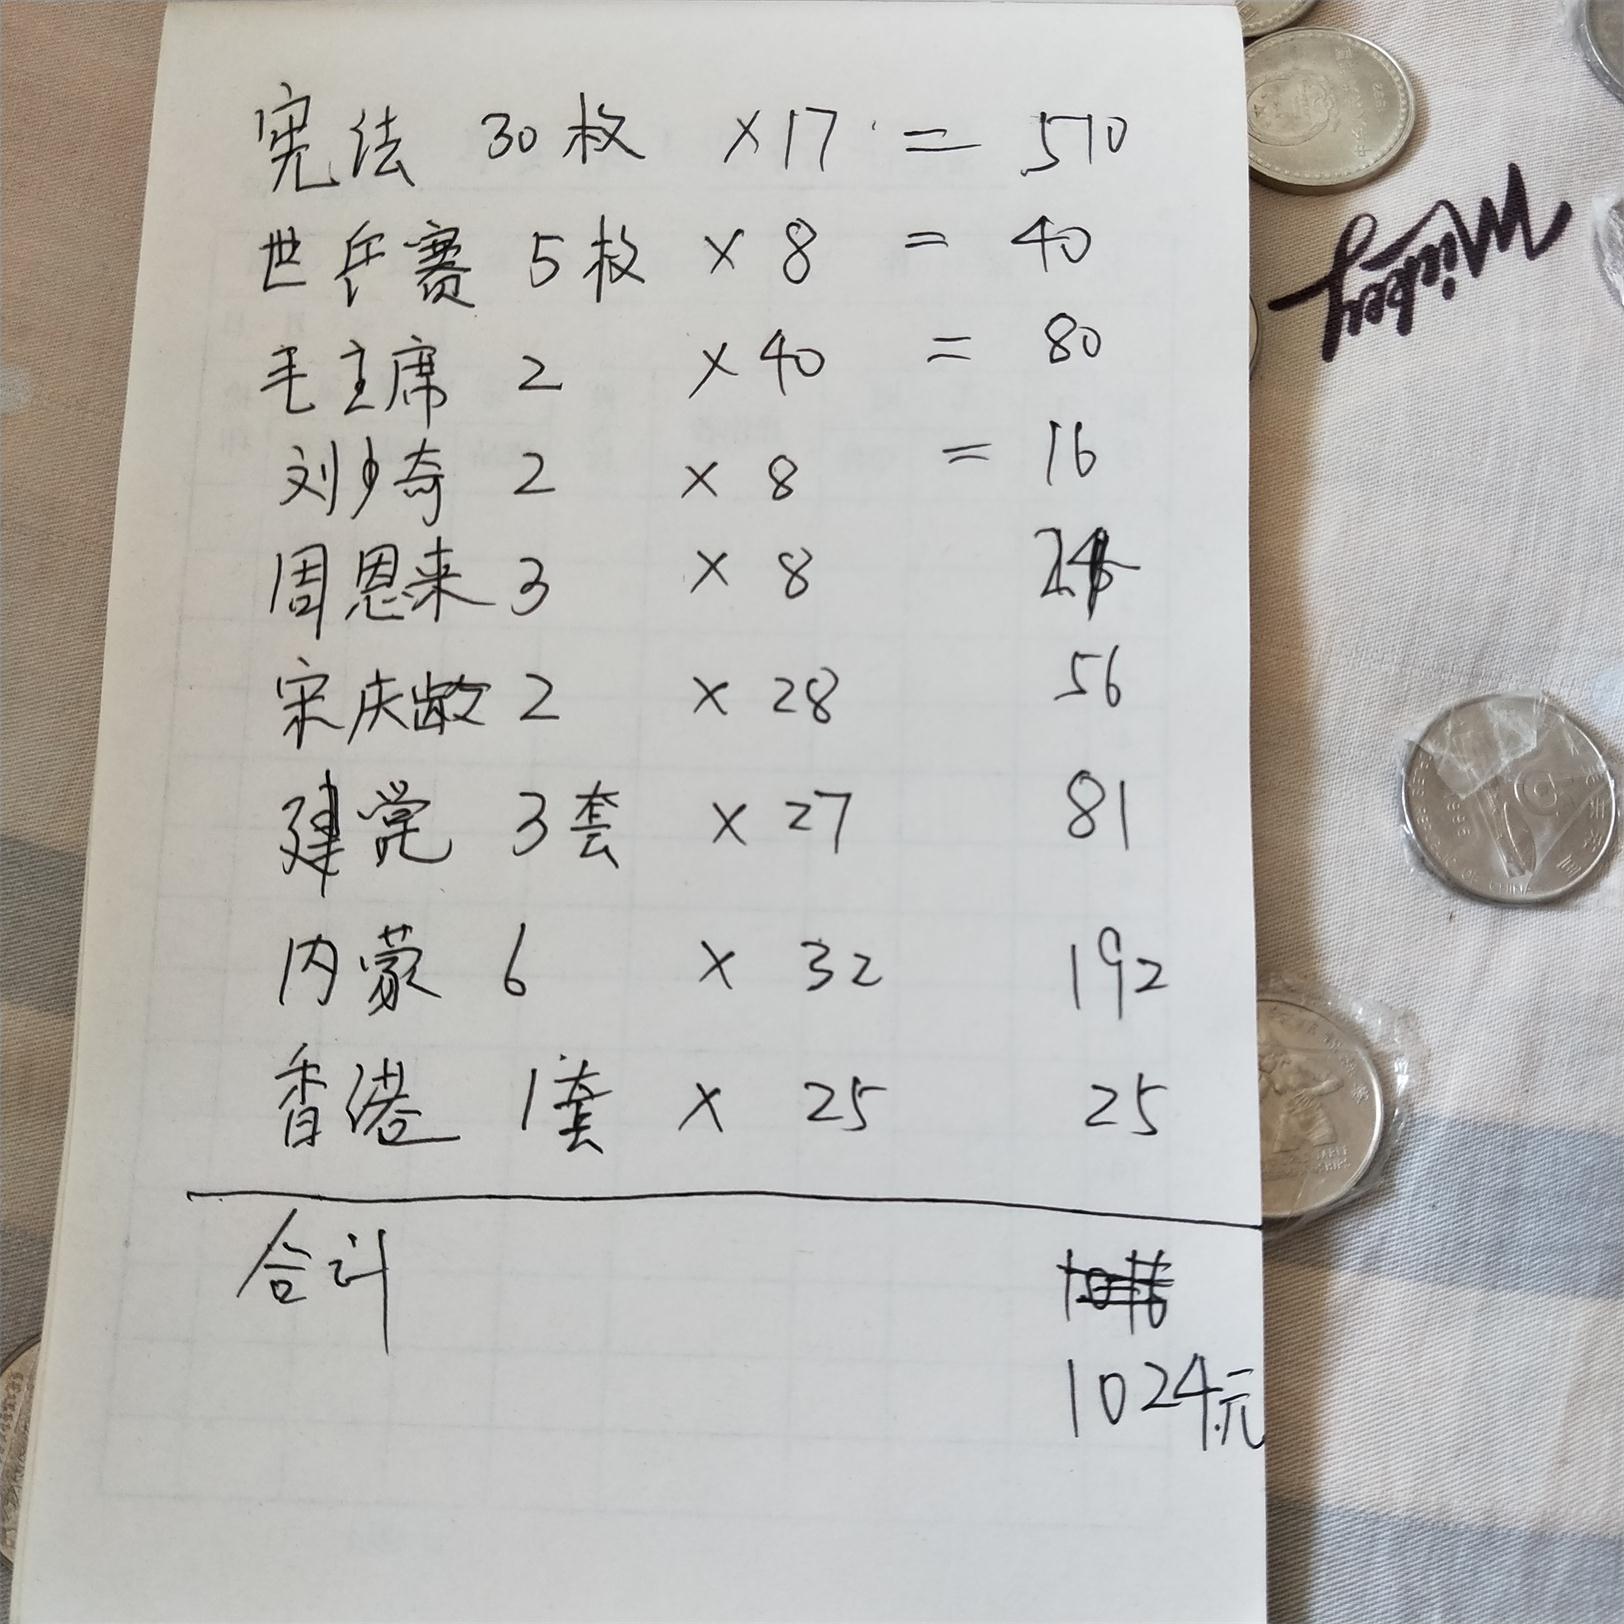 宪法 30枚 ×17 = 510
世乒赛 5枚 × 8 = 40
毛主席 2 ×40 = 80
刘少奇 2 × 8 = 16
周恩来 3 × 8 24
宋庆龄 2 × 28 56
建党 3套 × 27 81
内蒙 6 × 32 192
香港 1套 × 25 25
合计
1024元
Mickey